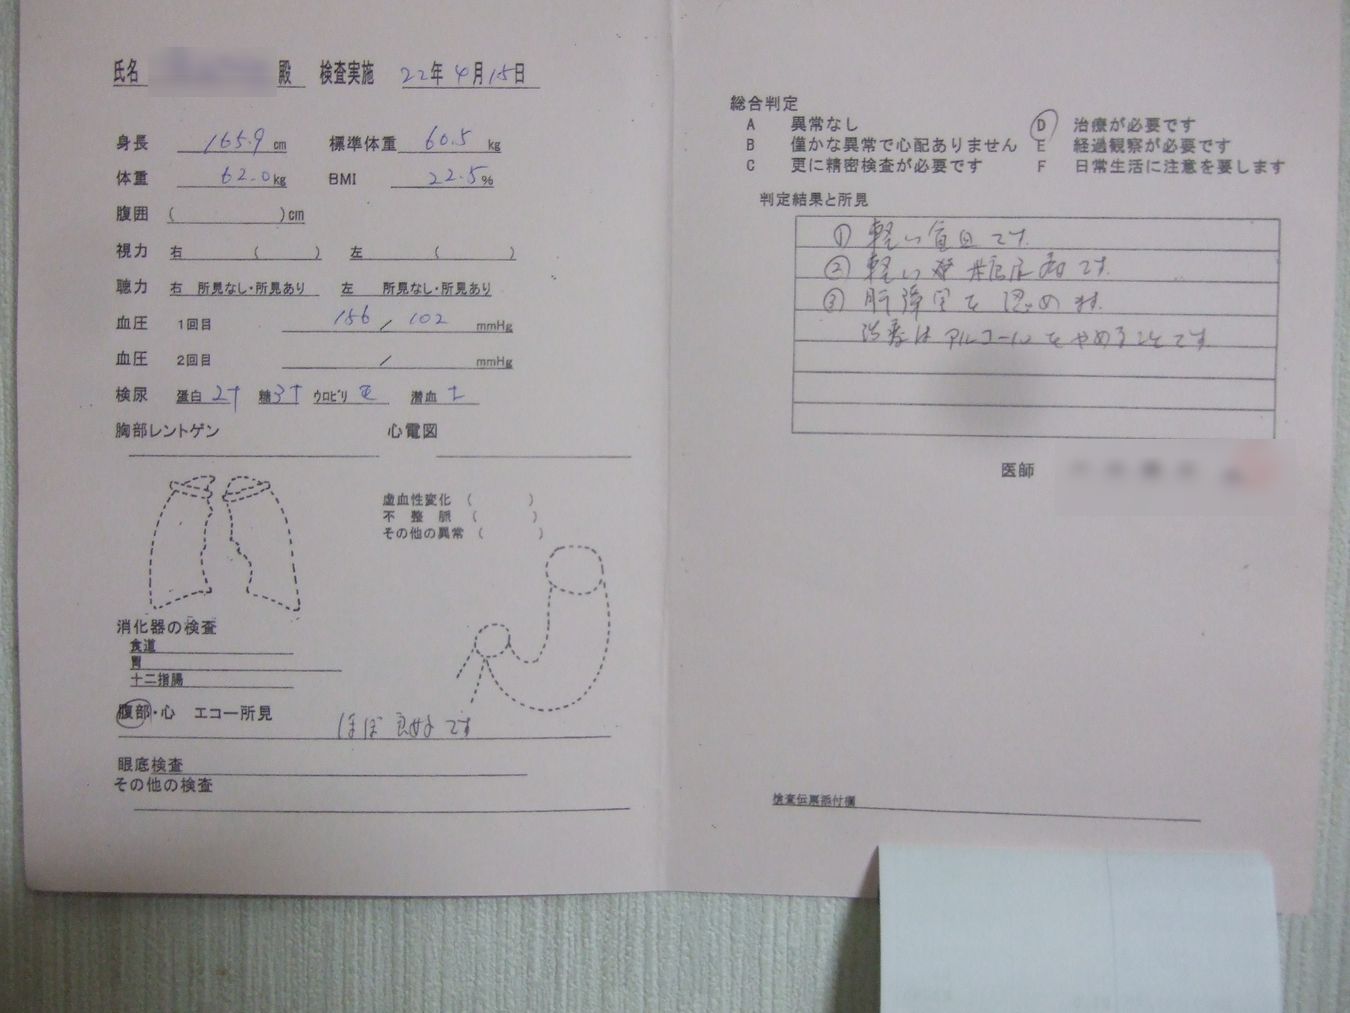 氏名 殿 検査実施 22年 4月 15日
身長 165.9 cm 標準体重 60.5 kg
体重 62.0 kg BMI 22.5 %
腹囲 ( ) cm
視力 右 ( ) 左 ( )
聴力 右 所見なし・所見あり 左 所見なし・所見あり
血圧 1回目 156 / 102 mmHg
血圧 2回目 / mmHg
検尿 蛋白 2+ 糖 3+ ウロビリ 正 潜血 ±
胸部レントゲン 心電図
虚血性変化 ( )
不整脈 ( )
その他の異常 ( )
消化器の検査
食道
胃
十二指腸
腹部・心 エコー所見 ほぼ良好です
眼底検査
その他の検査
総合判定
A 異常なし
B 僅かな異常で心配ありません
C 更に精密検査が必要です
D 治療が必要です
E 経過観察が必要です
F 日常生活に注意を要します
判定結果と所見
① 軽い です
② 軽い 糖尿病です
③ 肝障害を認めます
治療はアルコールをやめることです
医師
検査伝票添付欄